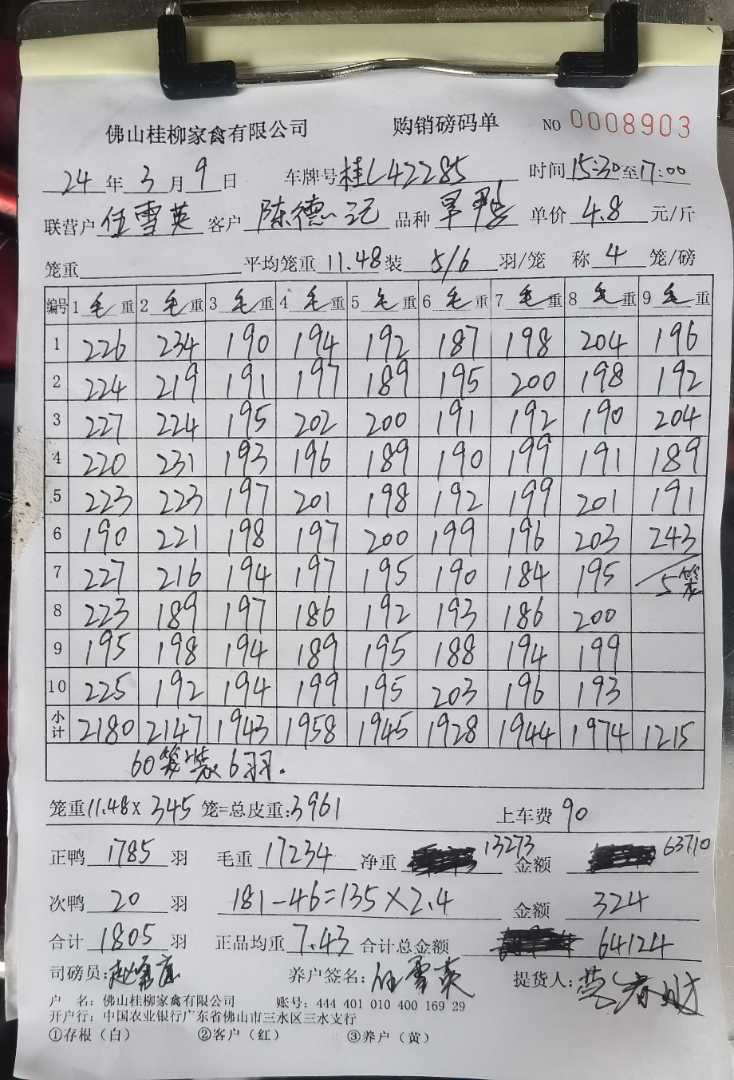 佛山桂柳家禽有限公司 购销磅码单 NO 0008903
24年3月9日 车牌号桂L42285 时间15:30至17:00
联营户任雪英 客户陈德记 品种旱鸭 单价4.8元/斤
笼重 平均笼重11.48装5/6羽/笼 称4笼/磅
编号 1毛重 2毛重 3毛重 4毛重 5毛重 6毛重 7毛重 8毛重 9毛重
1 226 234 190 194 192 187 198 204 196
2 224 219 191 197 189 195 200 198 192
3 227 224 195 202 200 191 192 190 204
4 220 231 193 196 189 190 199 191 189
5 223 223 197 201 198 192 199 201 191
6 190 221 198 197 200 199 196 203 243
7 227 216 194 197 195 190 184 195 5笼
8 223 189 197 186 192 193 186 200
9 195 198 194 189 195 188 194 199
10 225 192 194 199 195 203 196 193
小计 2180 2147 1943 1958 1945 1928 1944 1974 1215
60笼装6羽.
笼重11.48×345笼=总皮重:3961 上车费90
正鸭1785羽 毛重17234 净重13273 金额63710
次鸭20羽 181-46=135×2.4 金额324
合计1805羽 正品均重7.43 合计总金额64124
司磅员: 养户签名:任雪英 提货人:
户 名:佛山桂柳家禽有限公司 账号:444 401 010 400 169 29
开户行:中国农业银行广东省佛山市三水区三水支行
①存根(白) ②客户(红) ③养户(黄)